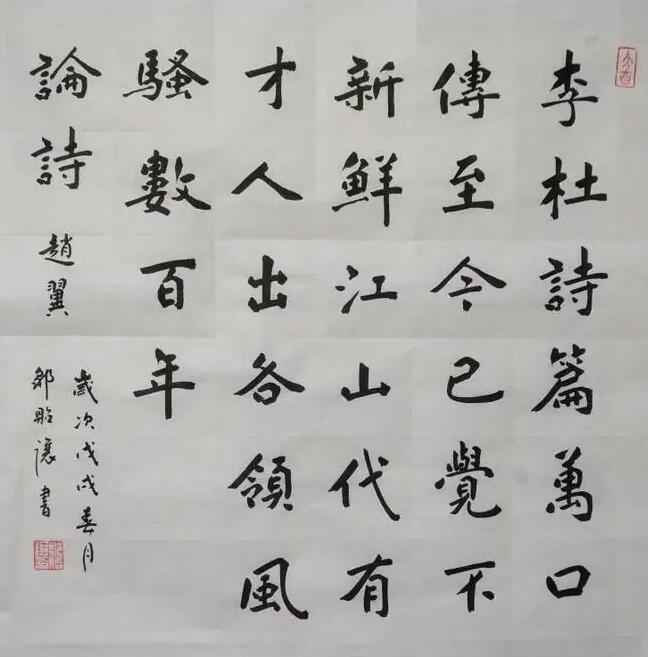 李杜詩篇萬口
傳至今已覺不
新鮮江山代有
才人出各領風
騷數百年
論詩 趙翼
歲次戊戌春月
鄒昭讓書